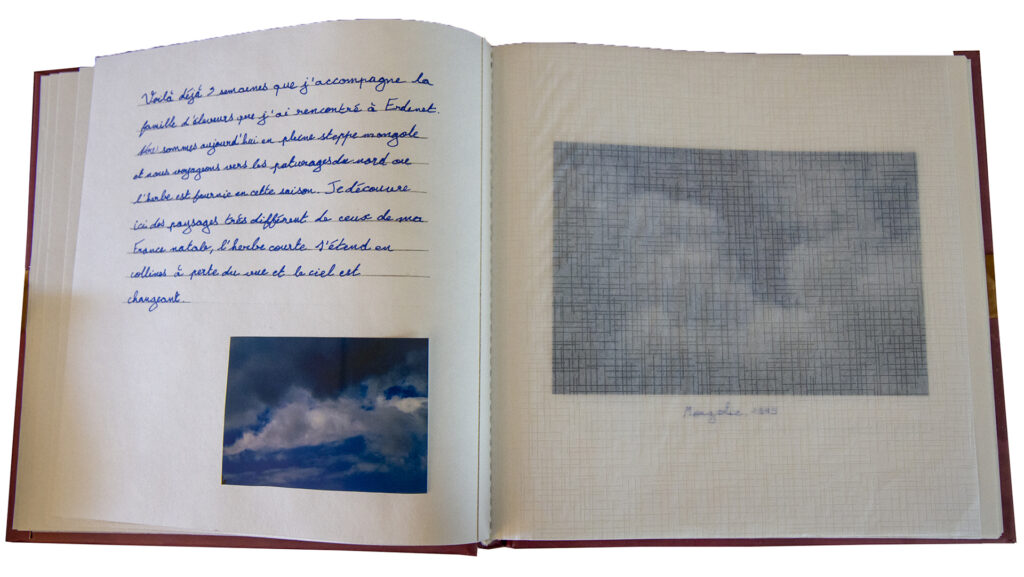 Voilà déjà 2 semaines que j'accompagne la
famille d'éleveurs que j'ai rencontré à Erdenet.
sommes aujourd'hui en pleine steppe mongole
et nous voyageons vers les paturages du nord ou
l'herbe est fournie en cette saison. Je découvre
ici des paysages très différent de ceux de ma
France natale, l'herbe courte s'étend en
collines à perte du vue et le ciel est
changeant.
Mongolie,